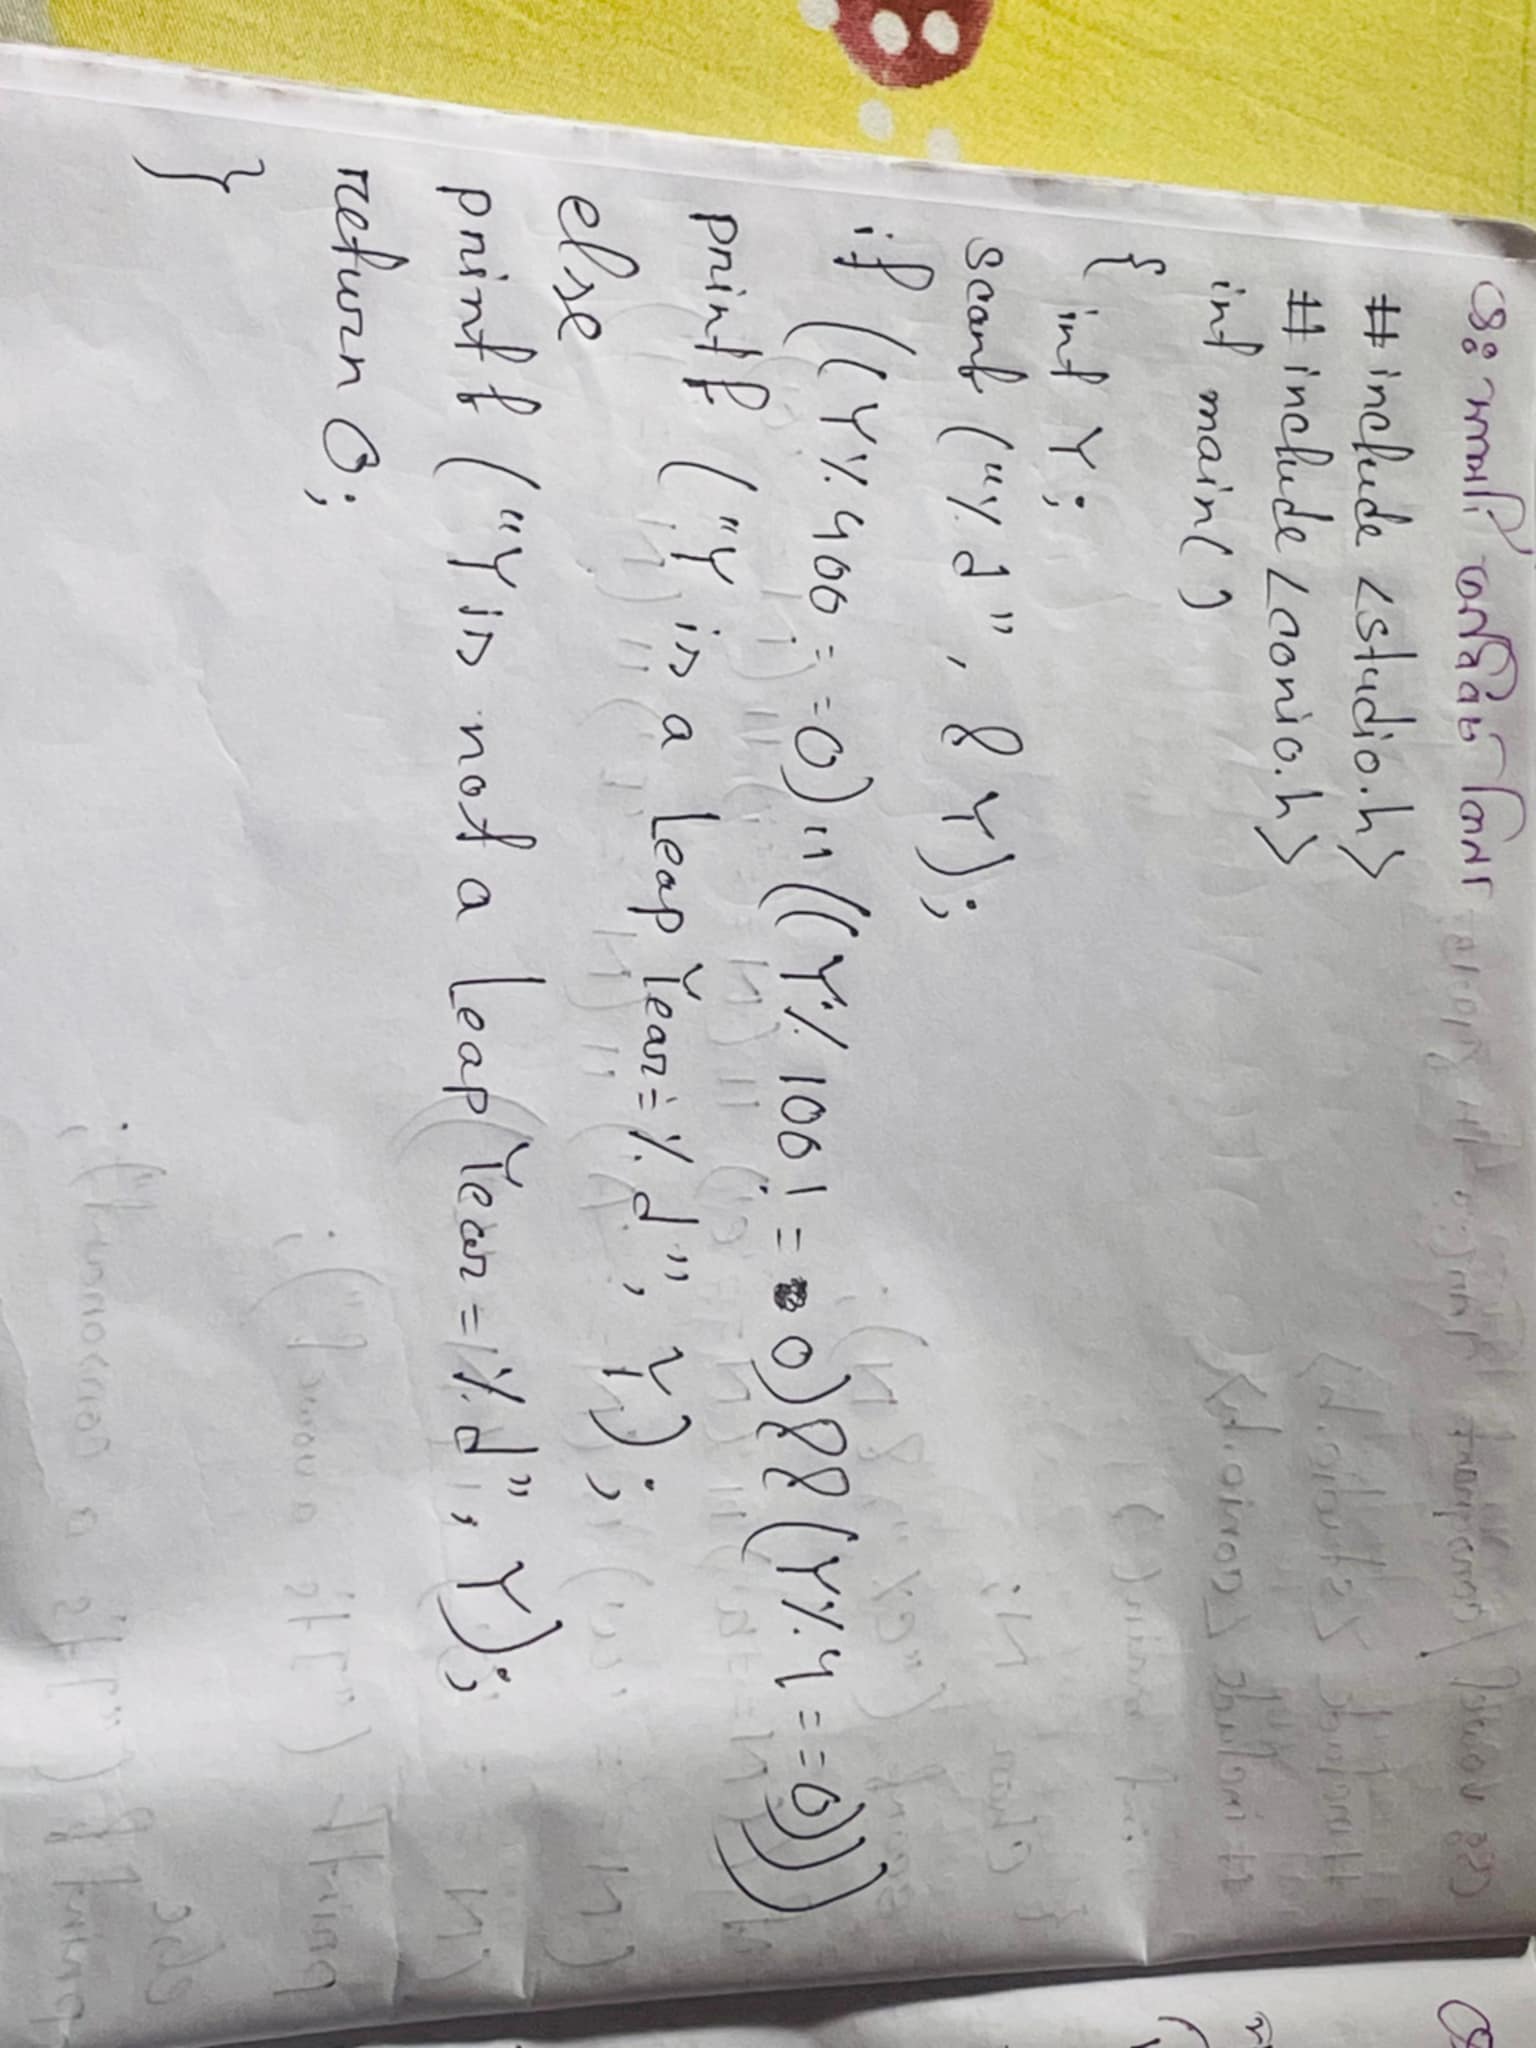 ৩ঃ সালটি অধিবর্ষ কিনা
#include <studio.h>
#include <conio.h>
int main()
{
int Y;
scanf ("%d", &Y);
if ((Y%400==0)||((Y%100!=0)&&(Y%4==0)))
printf ("Y is a Leap Year=%d", Y);
else
printf ("Y is not a Leap Year=%d", Y);
return 0;
}